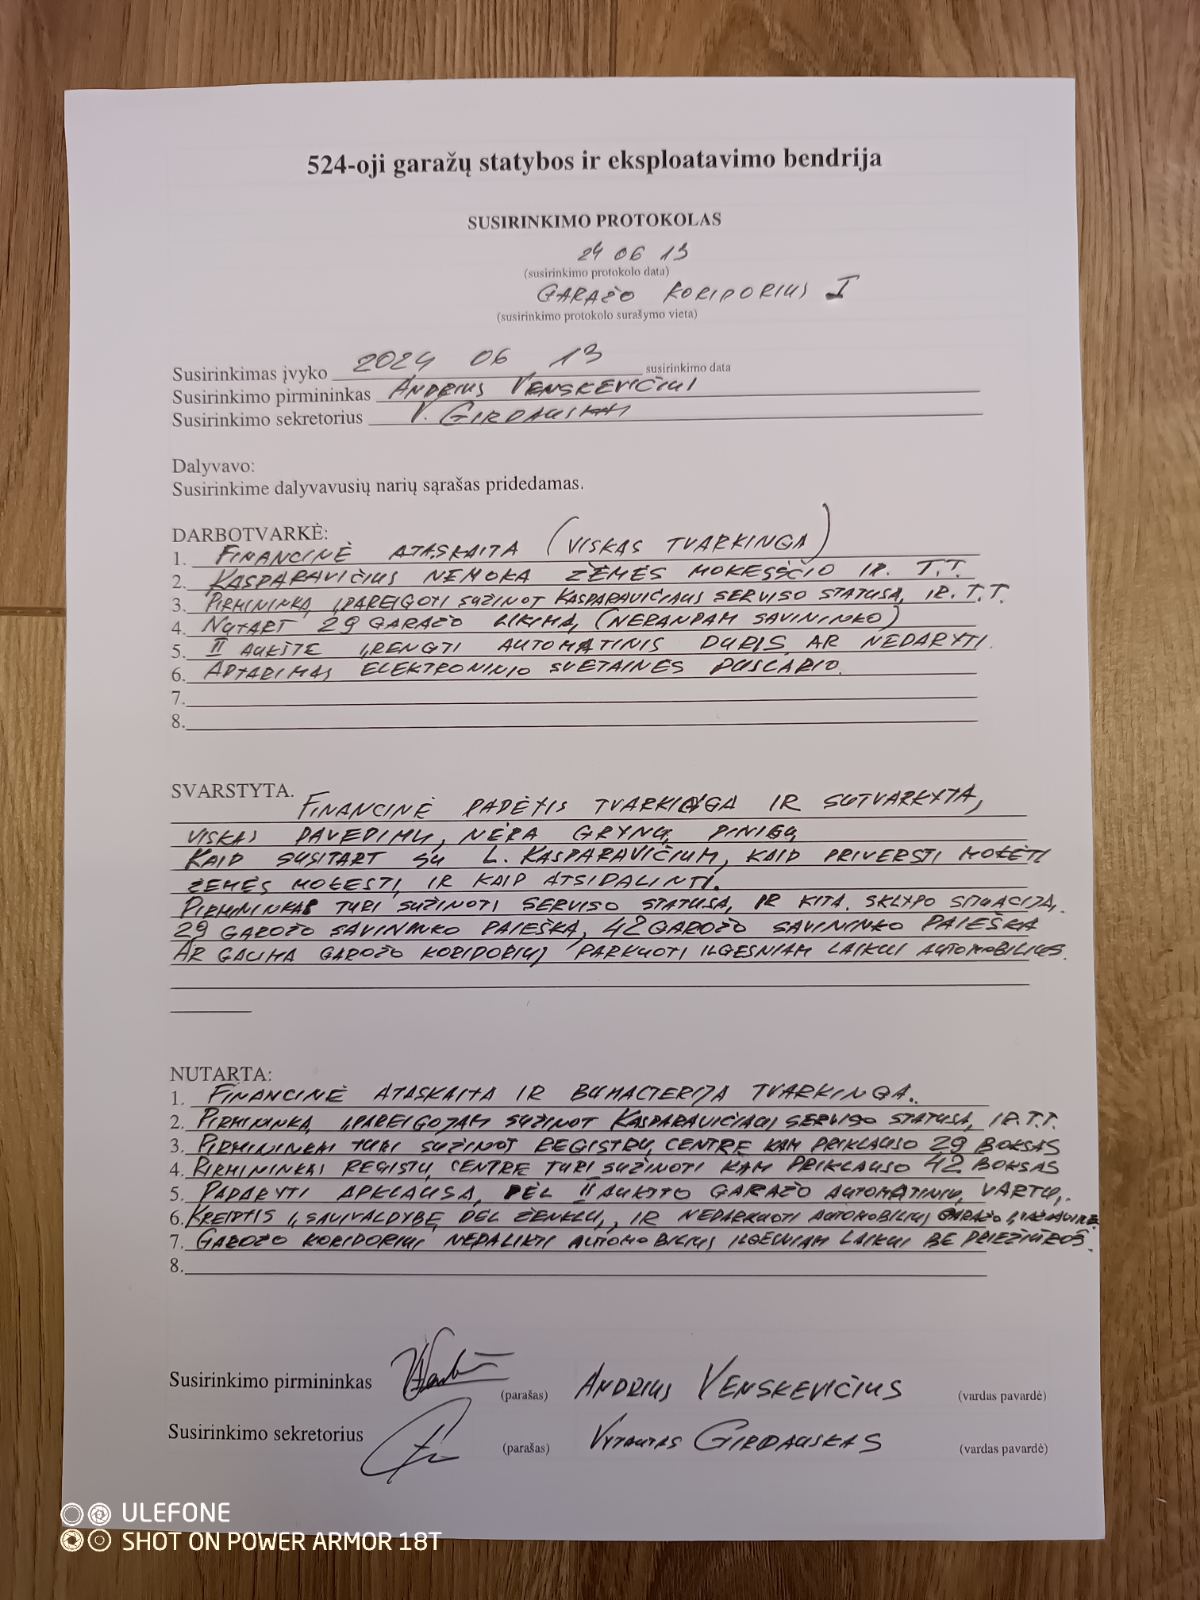 524-oji garažų statybos ir eksploatavimo bendrija
SUSIRINKIMO PROTOKOLAS
24 06 13
(susirinkimo protokolo data)
GARAŽO KORIDORIUS I
(susirinkimo protokolo surašymo vieta)
Susirinkimas įvyko 2024 06 13 susirinkimo data
Susirinkimo pirmininkas ANDRIUS VENSKEVIČIUS
Susirinkimo sekretorius V. GIRDAUSKAS
Dalyvavo:
Susirinkime dalyvavusių narių sąrašas pridedamas.
DARBOTVARKĖ:
1. FINANCINĖ ATASKAITA (VISKAS TVARKINGA)
2. KASPARAVIČIUS NEMOKA ŽEMĖS MOKESČIO IR. T.T.
3. PIRMININKĄ ĮPAREIGOTI SUŽINOT KASPARAVIČIAUS SERVISO STATUSĄ, IR. T.T.
4. NUTART 29 GARAŽO LIKIMĄ (NERANDAM SAVININKO)
5. II AUKŠTE ĮRENGTI AUTOMATINIS DURIS AR NEDARYTI.
6. APTARIMAS ELEKTRONINIO SVETAINĖS PUSLAPIO.
7.
8.
SVARSTYTA.
FINANCINĖ PADĖTIS TVARKINGA IR SUTVARKYTA,
VISKAS PAVEDIMU, NĖRA GRYNŲ PINIGŲ
KAIP SUSITART SU L. KASPARAVIČIUM, KAIP PRIVERSTI MOKĖTI
ŽEMĖS MOKESTĮ, IR KAIP ATSIDALINTI.
PIRMININKAS TURI SUŽINOTI SERVISO STATUSĄ, IR KITĄ. SKLYPO SITUACIJĄ.
29 GAROŽO SAVININKO PAIEŠKA, 42 GAROŽO SAVININKO PAIEŠKA
AR GALIMA GAROŽO KORIDORIUJ PARKUOTI ILGESNIAM LAIKUI AUTOMOBILIUS.
NUTARTA:
1. FINANCINĖ ATASKAITA IR BUHALTERIJA TVARKINGA.
2. PIRMININKĄ ĮPAREIGOJAM SUŽINOT KASPARAVIČIAUS SERVISO STATUSĄ, IR.T.T.
3. PIRMININKAI TURI SUŽINOT REGISTRŲ CENTRE KAM PRIKLAUSO 29 BOKSAS
4. PIRMININKAS REGISTŲ CENTRE TURI SUŽINOTI KAM PRIKLAUSO 42 BOKSAS
5. PADARYTI APKLAUSĄ, DĖL II AUKŠTO GARAŽO AUTOMATINIŲ VARTŲ.
6. KREIPTIS Į SAVIVALDYBĘ DĖL ŽENKLŲ, IR NEPARKUOTI AUTOMOBILIŲ GARAŽO
7. GAROŽO KORIDORIUI NEPALIKTI AUTOMOBILIUS ILGESNIAM LAIKUI BE PRIEŽIŪROS.
8.
Susirinkimo pirmininkas (parašas) ANDRIUS VENSKEVIČIUS (vardas pavardė)
Susirinkimo sekretorius (parašas) VYTAUTAS GIRDAUSKAS (vardas pavardė)
ULEFONE
SHOT ON POWER ARMOR 18T